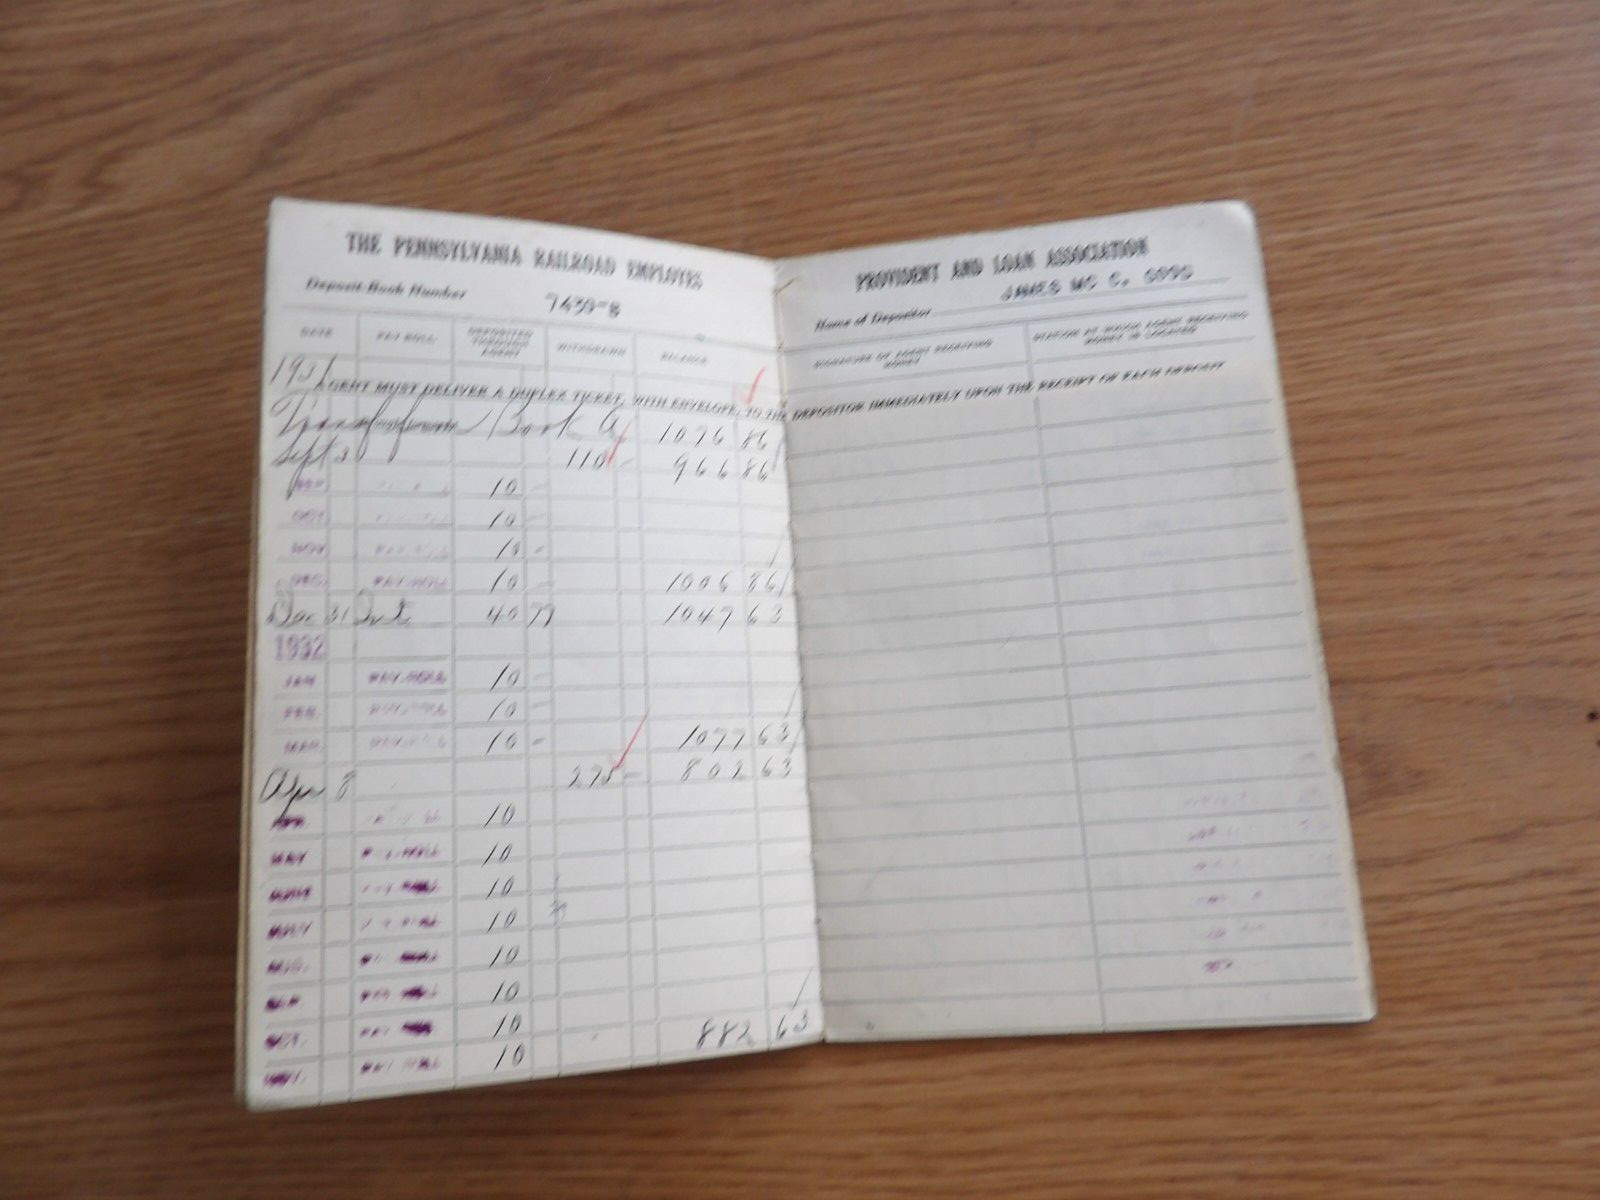 THE PENNSYLVANIA RAILROAD EMPLOYES
Deposit Book Number 7439-B
DATE PAY ROLL DEPOSITED THROUGH AGENT WITHDRAWN BALANCE
1931
AGENT MUST DELIVER A DUPLEX TICKET, WITH ENVELOPE, TO THE DEPOSITOR IMMEDIATELY UPON THE RECEIPT OF EACH DEPOSIT
Transfer from Book A 1076 86
Sept 3 110 - 966 86
SEP. 10 -
OCT. 10 -
NOV. PAY-ROLL 10 -
DEC. PAY-ROLL 10 - 1006 86
Dec 31 Int 40 77 1047 63
1932
JAN PAY-ROLL 10 -
FEB. PAY-ROLL 10 -
MAR. PAY-ROLL 10 - 1077 63
Apr 8 275 - 802 63
APR. 10
MAY PAY-ROLL 10
JUNE PAY-ROLL 10
JULY PAY-ROLL 10
AUG. PAY-ROLL 10
SEP PAY-ROLL 10
OCT. PAY-ROLL 10
NOV. PAY-ROLL 10 882 63
PROVIDENT AND LOAN ASSOCIATION
Name of Depositor JAMES MC C.
SIGNATURE OF AGENT RECEIVING MONEY
STATION AT WHICH AGENT RECEIVING MONEY IS LOCATED